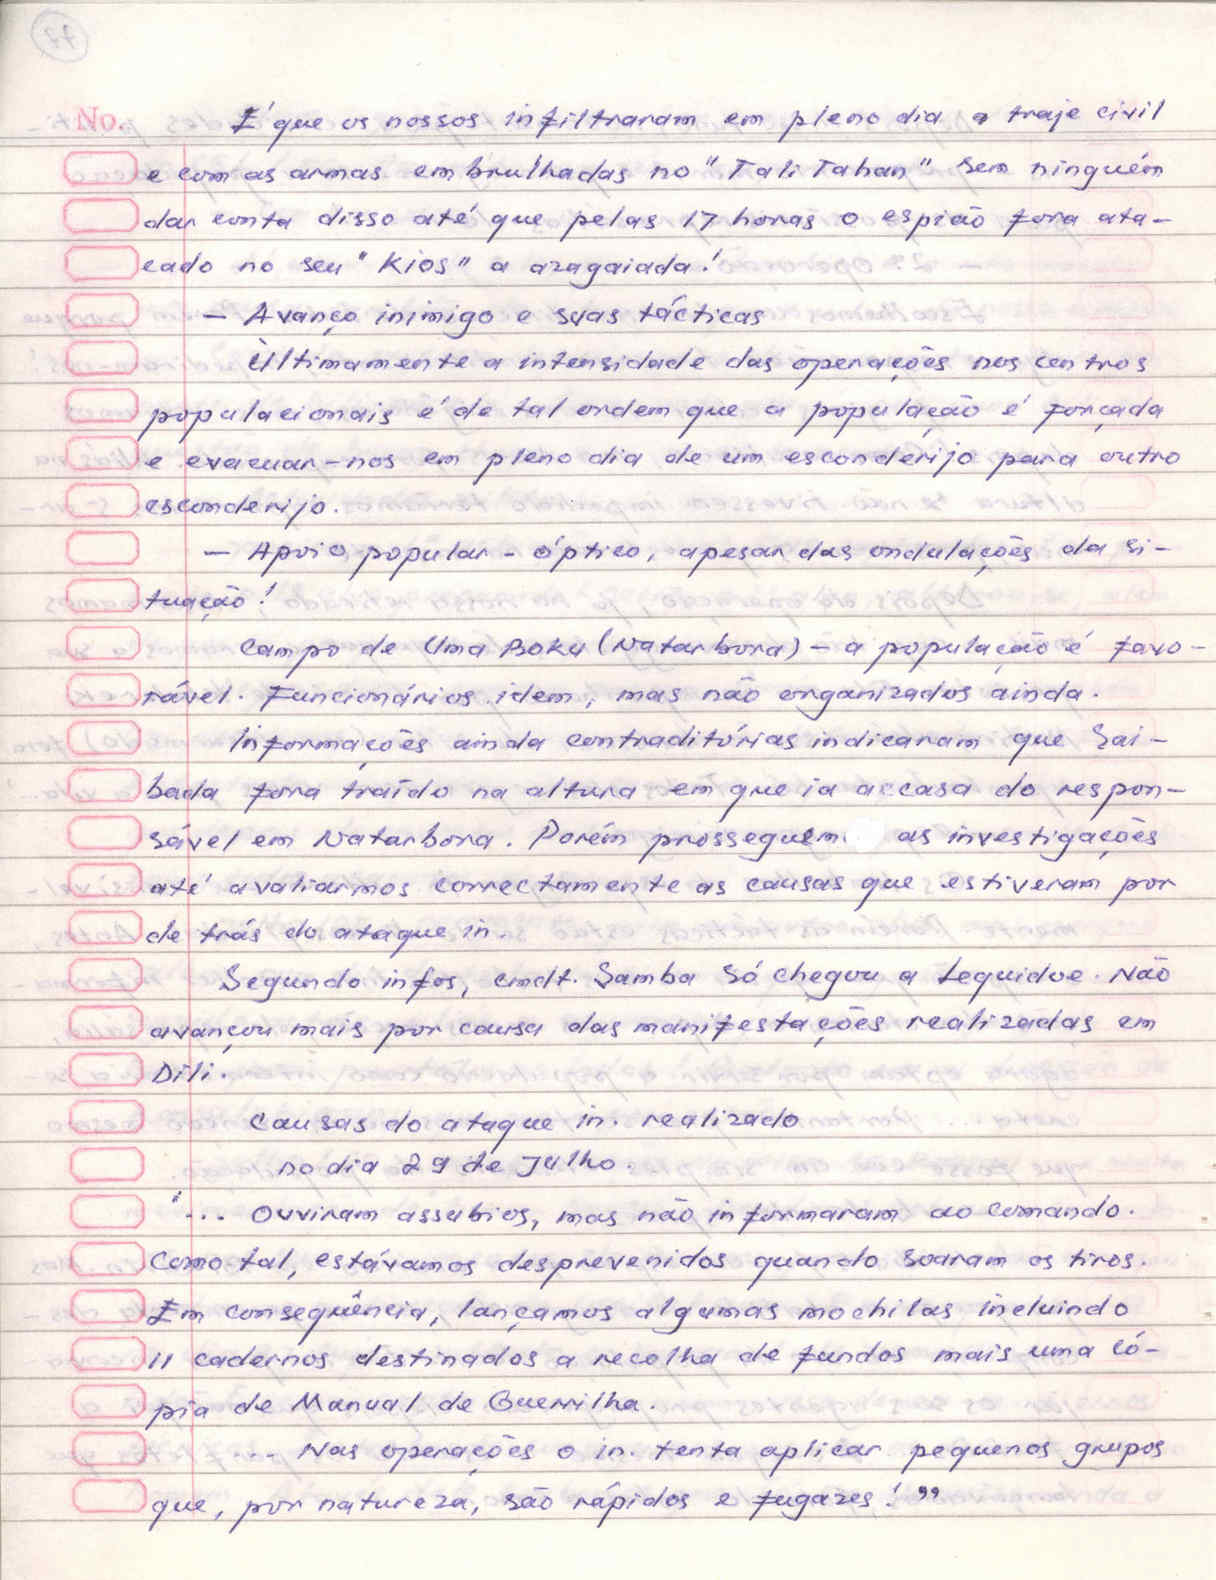 No.
É que os nossos infiltraram em pleno dia a traje civil
e com as armas embrulhadas no "Tali Tahan" sem ninguém
dar conta disso até que pelas 17 horas o espião fora ata-
cado no seu "Kios" a azagaiada!
- Avanço inimigo e suas tácticas
Ùltimamente a intensidade das operações nos centros
populacionais é de tal ordem que a população é forçada
e evacuar-nos em pleno dia de um esconderijo para outro
esconderijo.
- Apoio popular - óptico, apesar das ondulações da si-
tuação!
Campo de Uma Boku (Natarbora) - a população é favo-
rável. Funcionários idem, mas não organizados ainda.
Informações ainda contraditórias indicaram que Sai-
bada fora traído na altura em que ia a casa do respon-
sável em Natarbora. Porém prosseguem as investigações
até avaliarmos correctamente as causas que estiveram por
de trás do ataque in.
Segundo infos, cmdt. Samba só chegou a Lequidoe. Não
avançou mais por causa das manifestações realizadas em
Dili.
Causas do ataque in. realizado
no dia 29 de Julho.
"... Ouviram assubios, mas não informaram ao comando.
Como tal, estávamos desprevenidos quando soaram os tiros.
Em consequência, lançamos algumas mochilas incluindo
11 cadernos destinados a recolha de fundos mais uma có-
pia de Manual de Guerrilha.
... Nas operações o in. tenta aplicar pequenos grupos
que, por natureza, são rápidos e fugazes!"